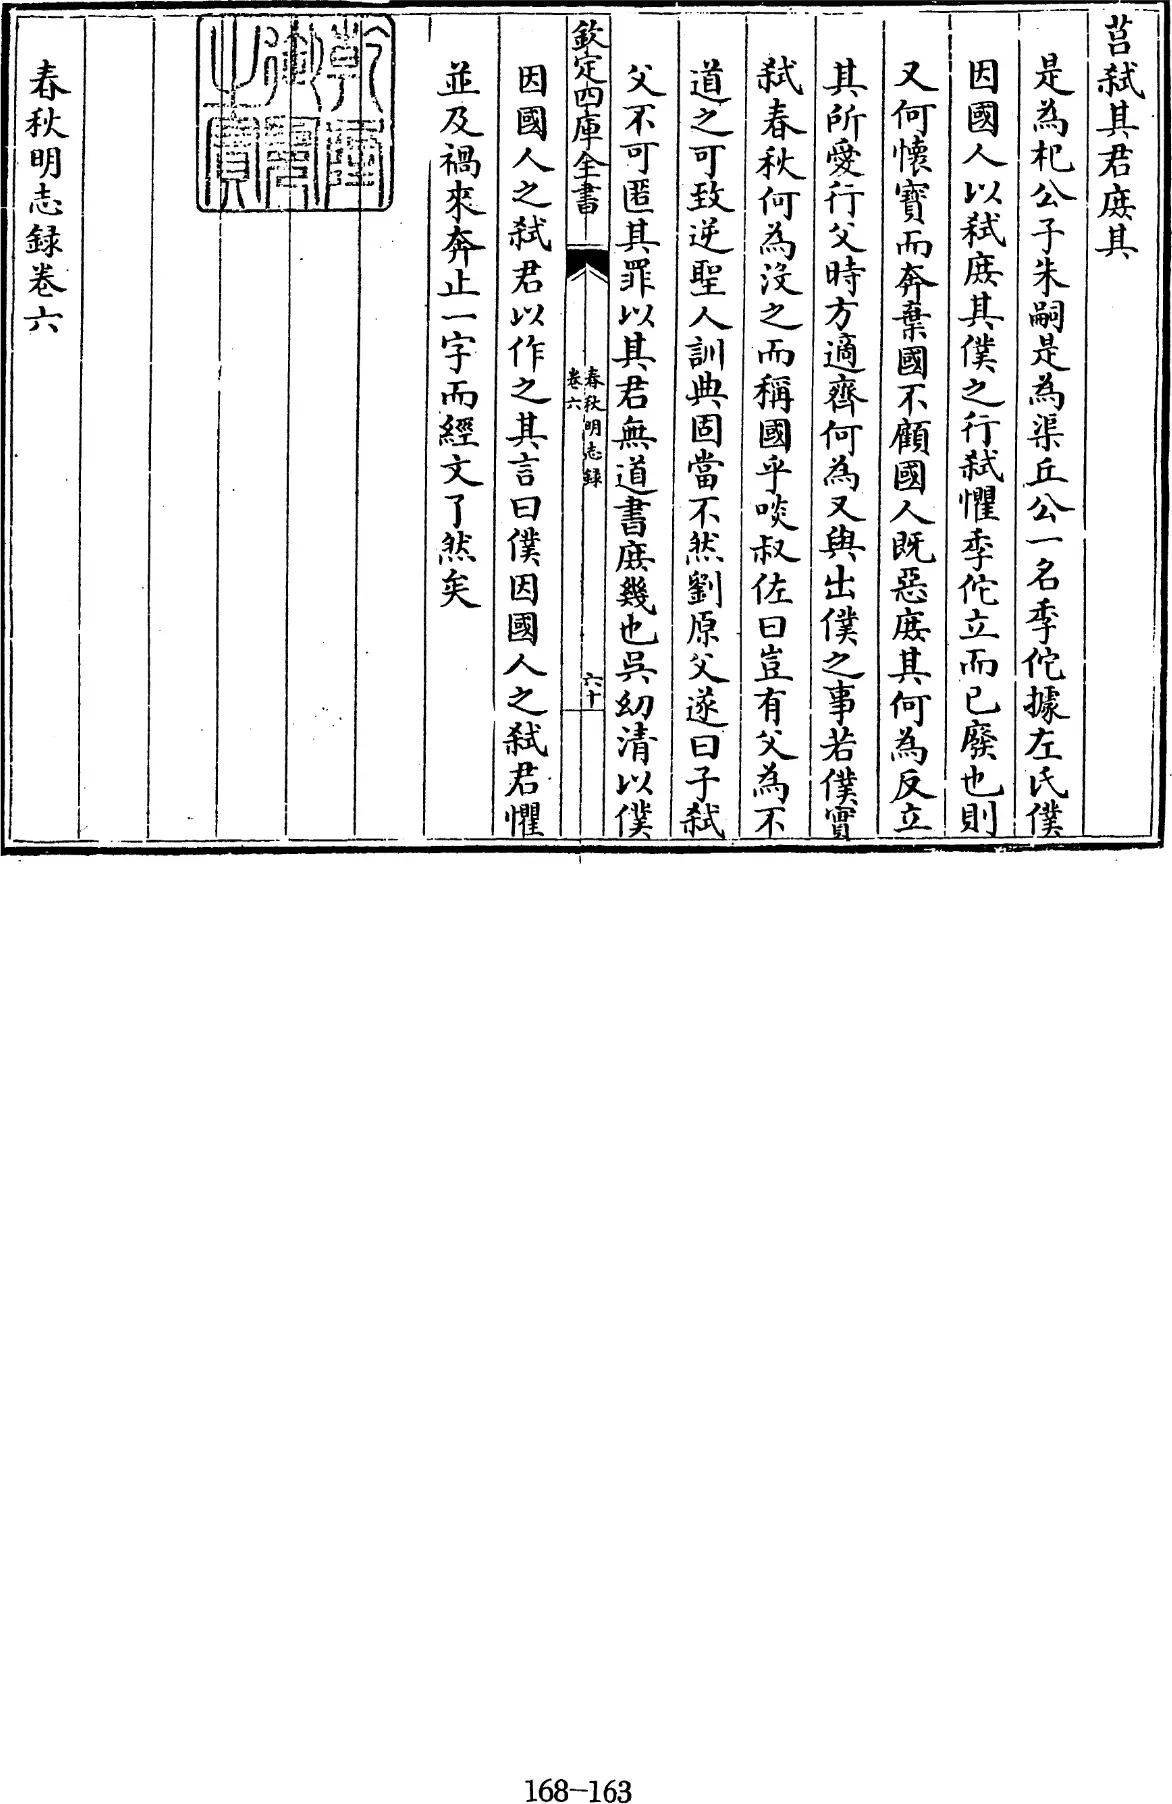 莒弒其君庻其
是為杞公子朱嗣是為渠丘公一名季佗據左氏僕
因國人以弒庻其僕之行弒懼季佗立而已廢也則
又何懐寳而奔棄國不顧國人既惡庻其何為反立
其所愛行父時方適齊何為又與出僕之事若僕實
弒春秋何為沒之而稱國乎啖叔佐曰豈有父為不
道之可致逆聖人訓典固當不然劉原父遂曰子弒
父不可匿其罪以其君無道書庻幾也呉幼清以僕
欽定四庫全書
春秋明志録
卷六
六十
因國人之弒君以作之其言曰僕因國人之弒君懼
並及禍來奔止一字而經文了然矣
乾隆御覽之寳
春秋明志録卷六
168-163